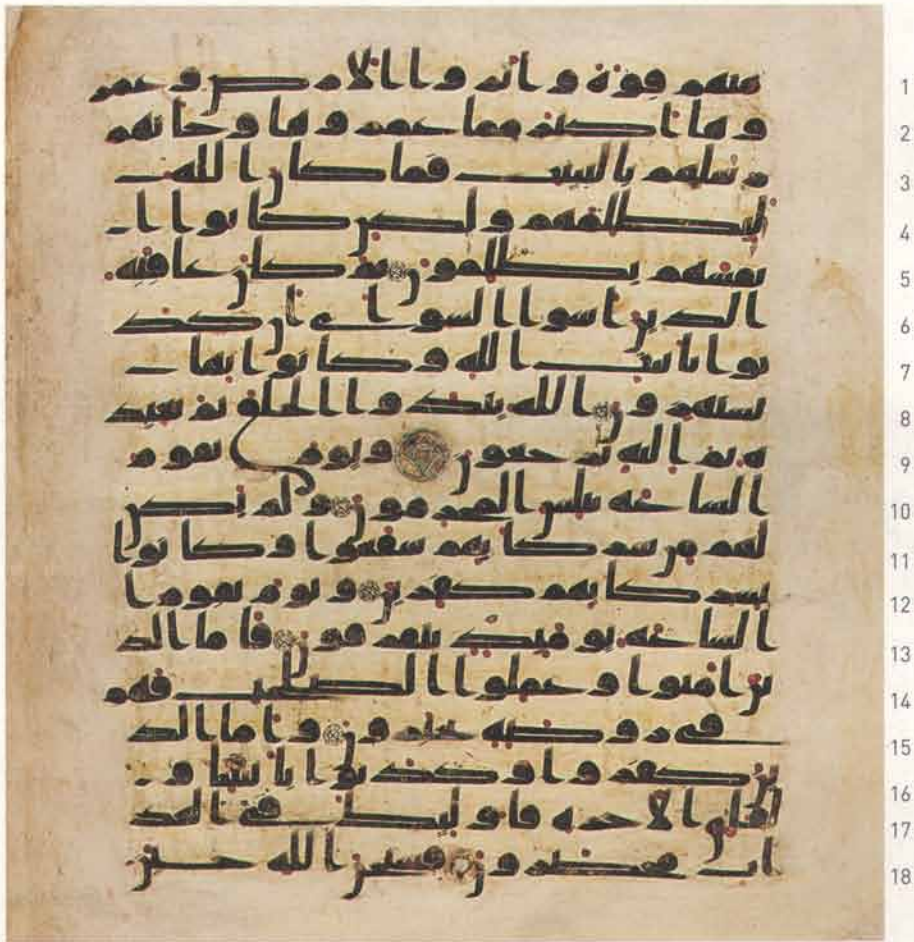 منهم قوة واثاروا الارض وعمر 1
وها اكثر مما عمروها وجاتهم 2
رسلهم بالبينت فما كان الله 3
ليظلمهم ولكن كانوا ا 4
نفسهم يظلمون ثم كان عاقبه 5
الذين اسوا السواى ان كذ 6
بوا بايت الله وكانوا بها 7
يستهزون الله يبدوا الخلق ثم يعيد 8
ه ثم اليه ترجعون ويوم تقوم 9
الساعه يبلس المجرمون ولم يكن 10
لهم من شركايهم شفعوا وكانوا 11
بشركايهم كفرين ويوم تقوم 12
الساعه يوميذ يتفرقون فاما الذ 13
ين امنوا وعملوا الصلحت فهم 14
في روضه يحبرون واما الذ 15
ين كفروا وكذبوا بايتنا و 16
لقاى الاخره فاوليك في العذ 17
اب محضرون فسبحن الله حين 18